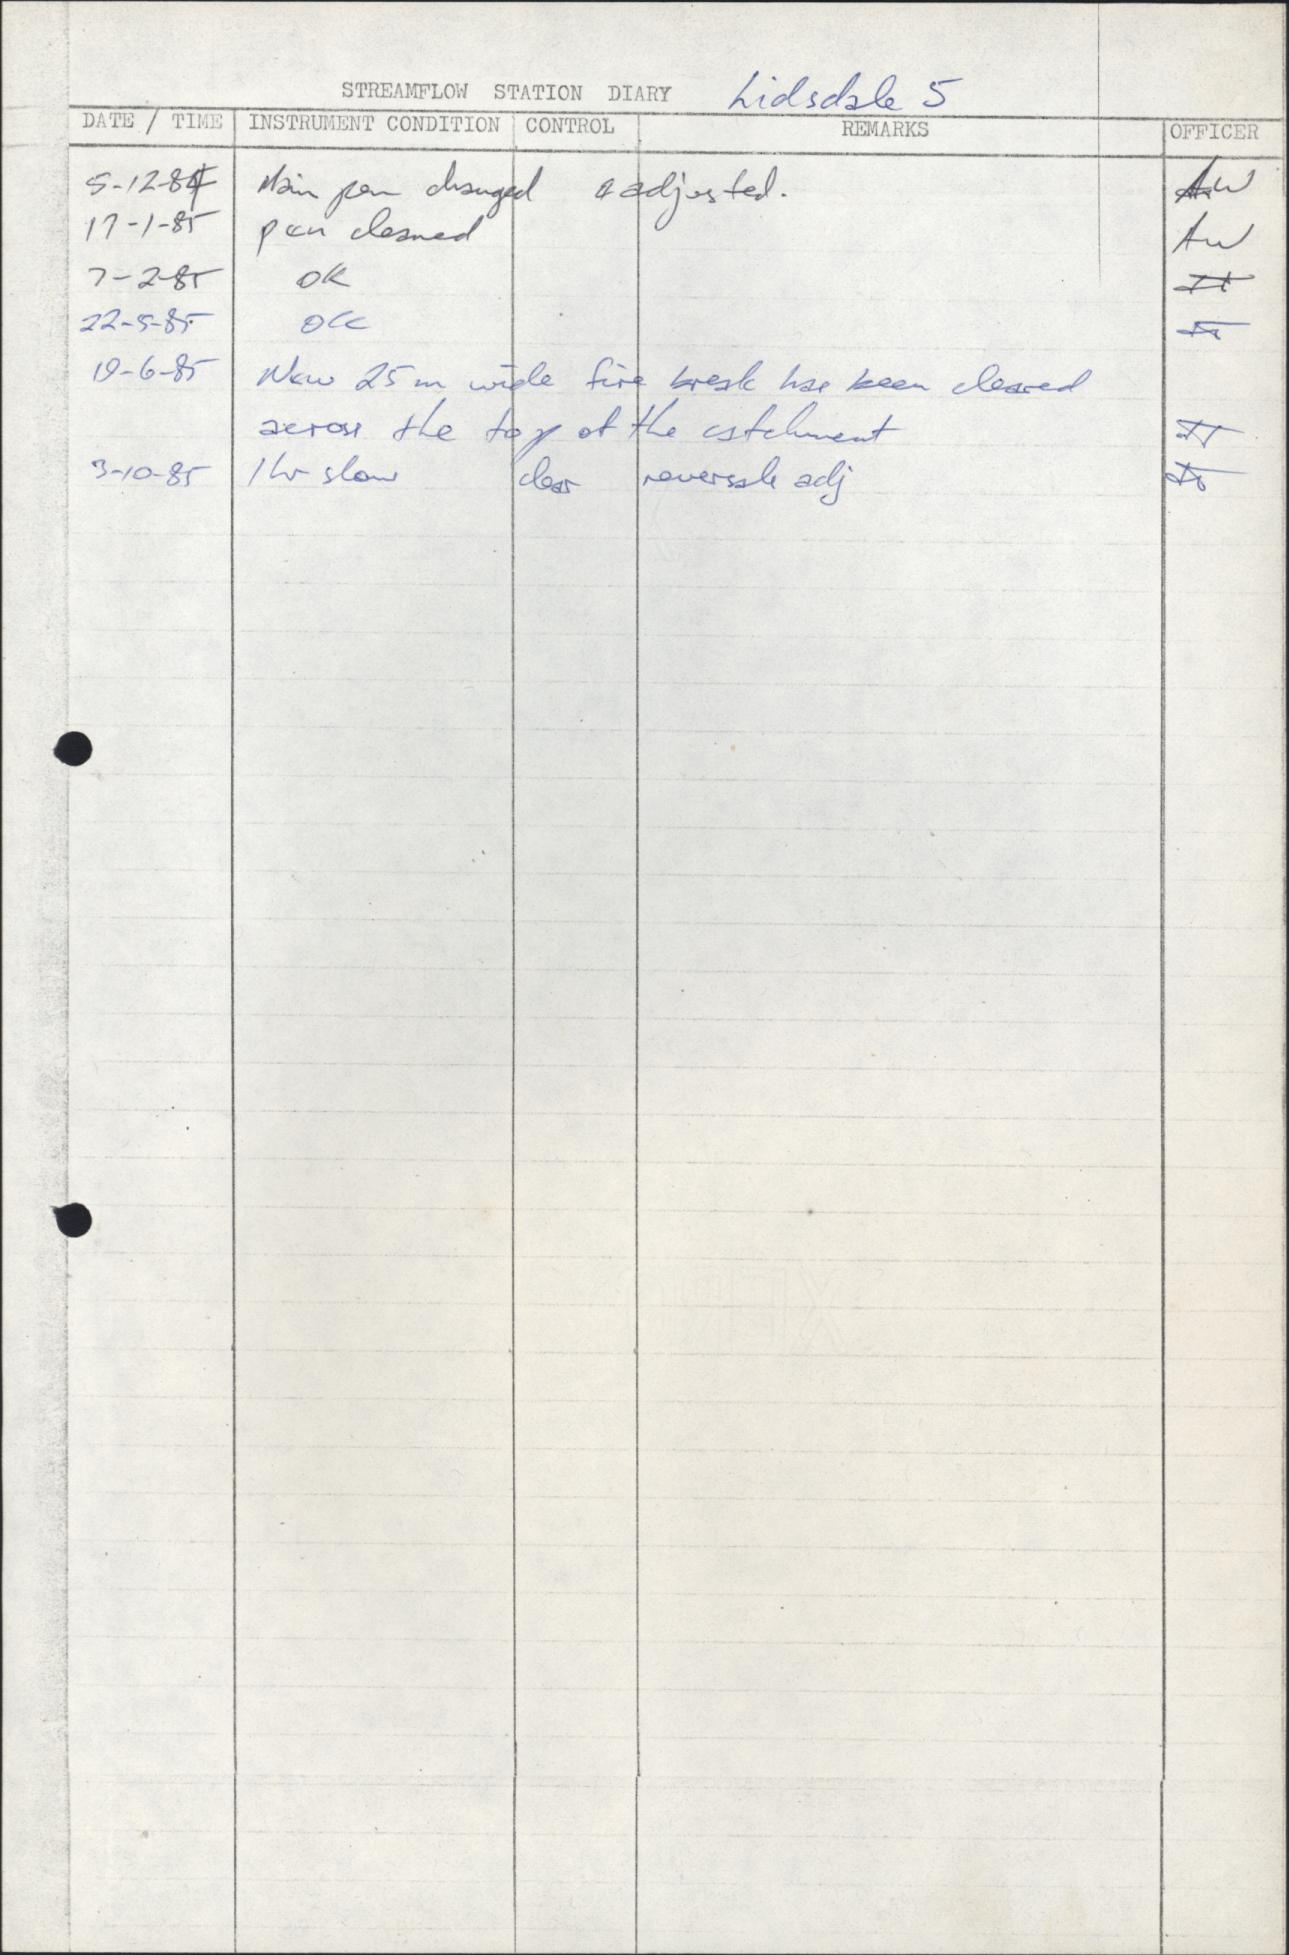 STREAMFLOW STATION DIARY Lidsdale 5
DATE / TIME INSTRUMENT CONDITION CONTROL REMARKS OFFICER
5-12-84 Main pen changed & adjusted. AW
17-1-85 pen cleaned AW
7-2-85 OK
22-5-85 OK
19-6-85 New 25m wide fire break has been cleared
across the top of the catchment
3-10-85 1 hr slow clear reversals adj